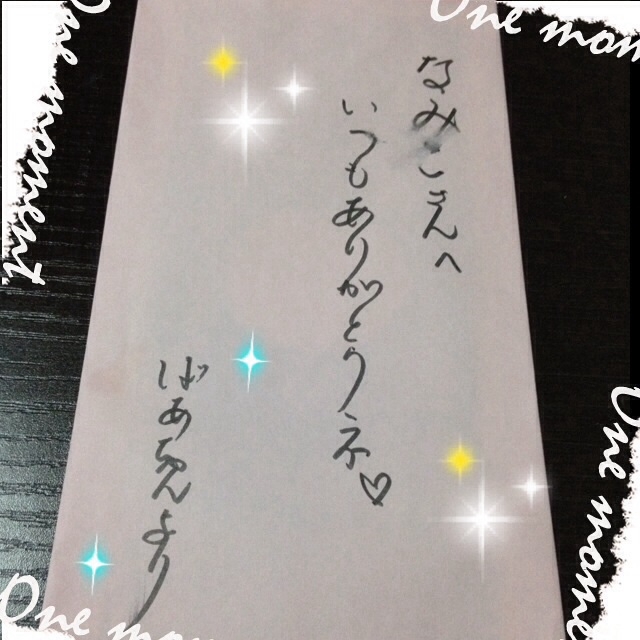 One moment
One mom
なみこさんへ
いつもありがとうネ♡
ばあちゃんより
One mome
One mom